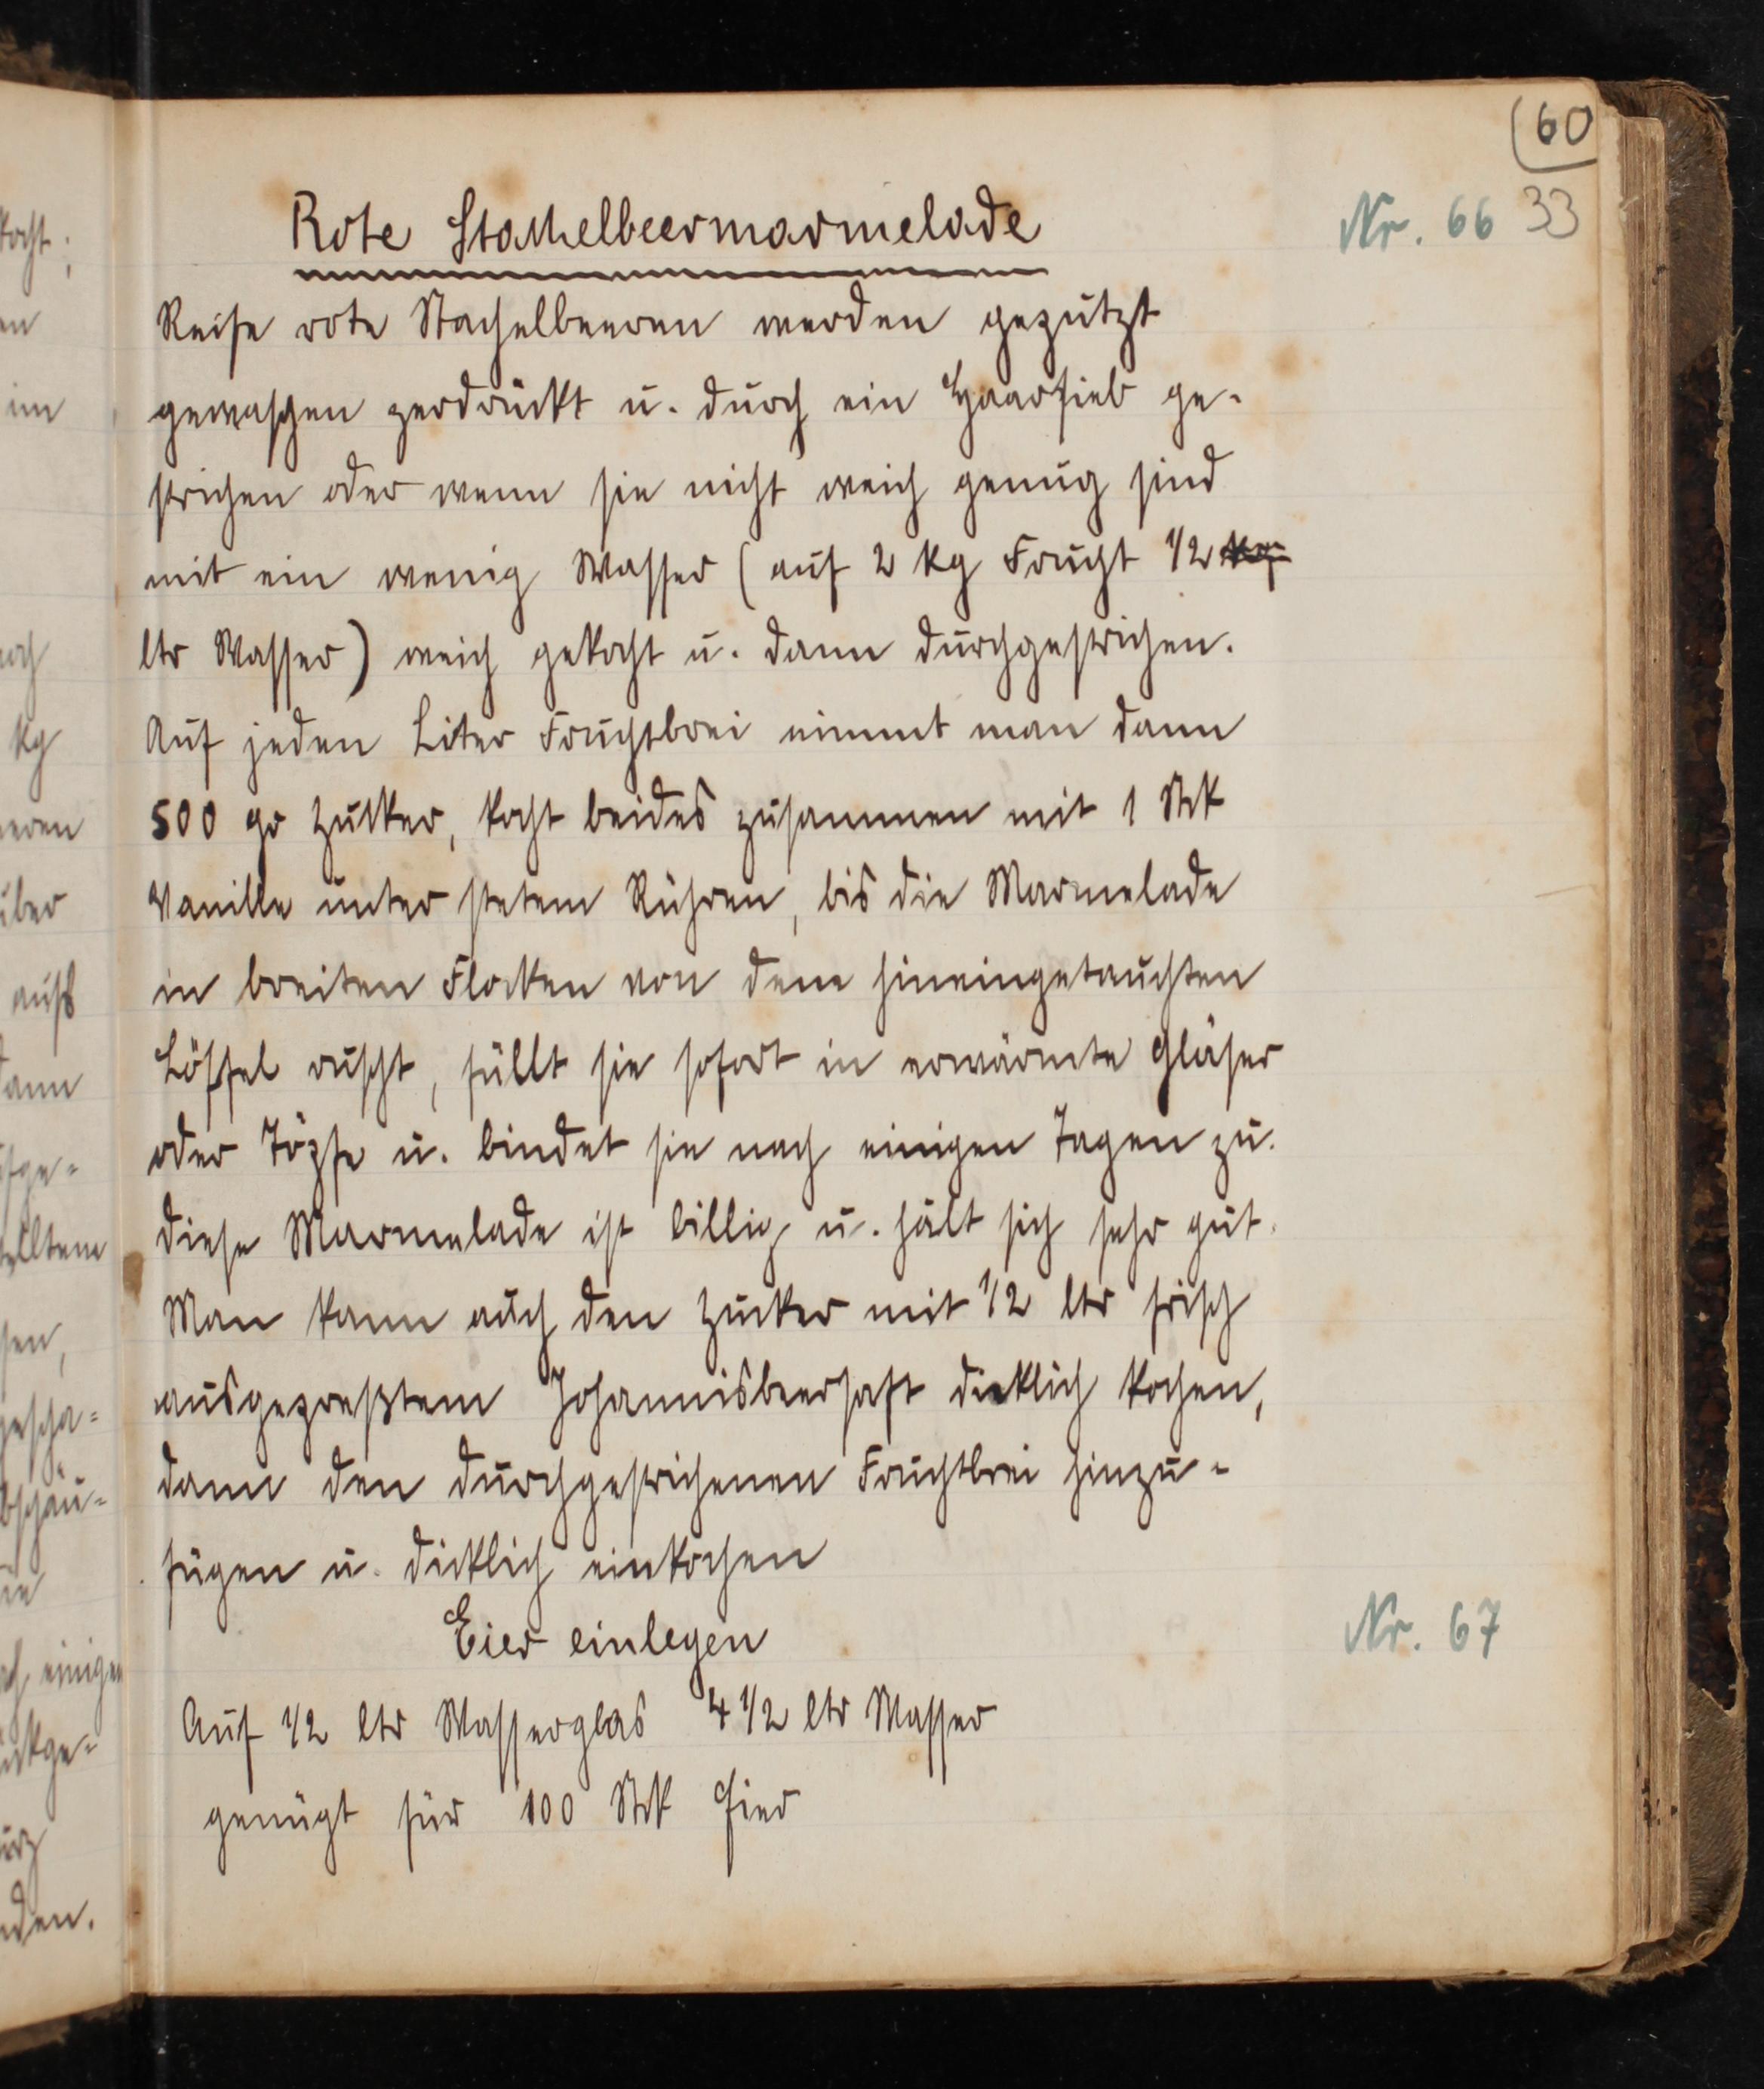 60
Rote Stachelbeermarmelade
Nr. 66 33
Reife rote Stachelbeeren werden geputzt
gewaschen zerdrückt u. durch ein Haarsieb ge-
strichen oder wenn sie nicht weich genug sind
mit ein wenig Wasser (auf 2 kg Frucht 1/2 kg
ltr Wasser) weich gekocht u. dann durchgestrichen.
Auf jeden Liter Fruchtbrei nimmt man dann
500 gr Zucker, kocht beides zusammen mit 1 Stk
Vanille unter stetem Rühren, bis die Marmelade
in breiten Flocken von dem hineingetauchten
Löffel rutscht, füllt sie sofort in erwärmte Gläser
oder Töpfe u. bindet sie nach einigen Tagen zu.
diese Marmelade ist billig u. hält sich sehr gut.
Man kann auch den Zucker mit 1/2 ltr frisch
ausgepreßtem Johannisbeersaft dicklich kochen,
dann den durchgestrichenen Fruchtbrei hinzu-
fügen u. dicklich einkochen
Eier einlegen
Nr. 67
Auf 1/2 ltr Wasserglas 4 1/2 ltr Wasser
genügt für 100 Stk Eier